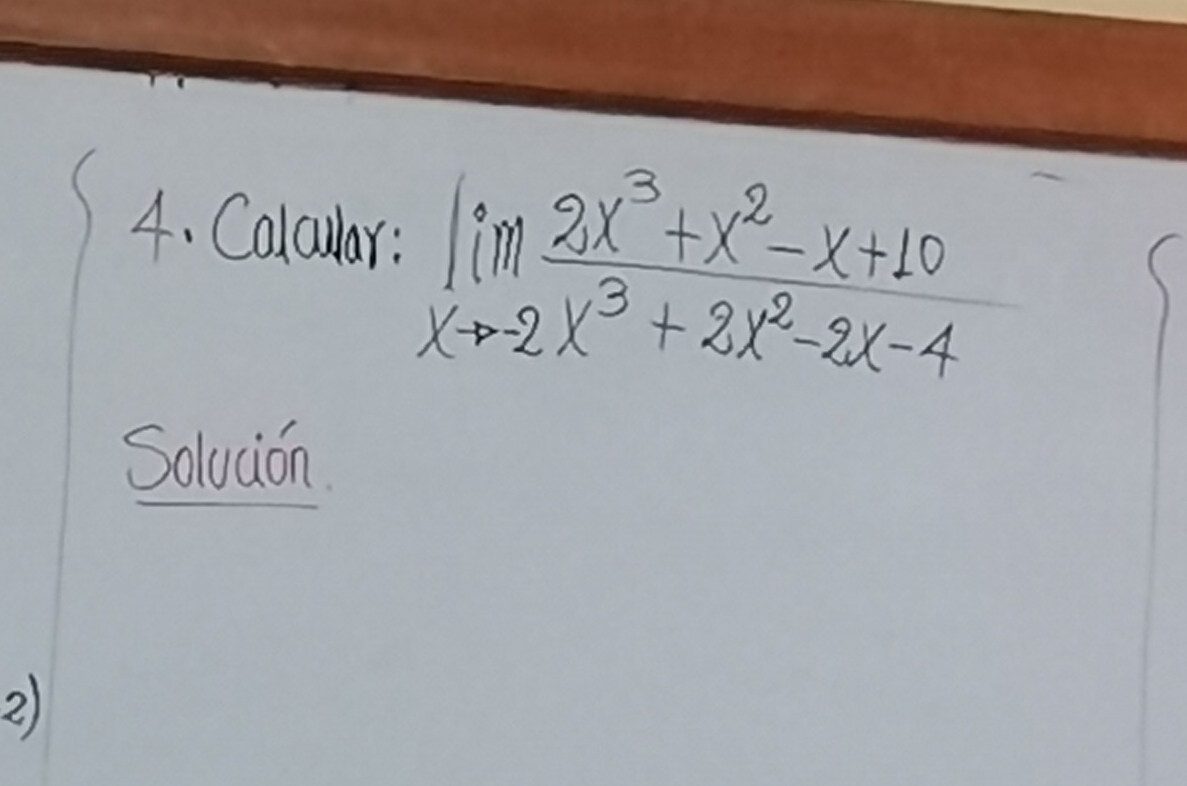 4. Calcular: lim 2x³+x²-x+10
x→-2 x³+2x²-2x-4
Solución.
2)